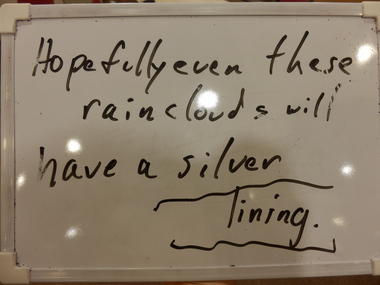 Hopefully even these
rainclouds will
have a silver
lining.